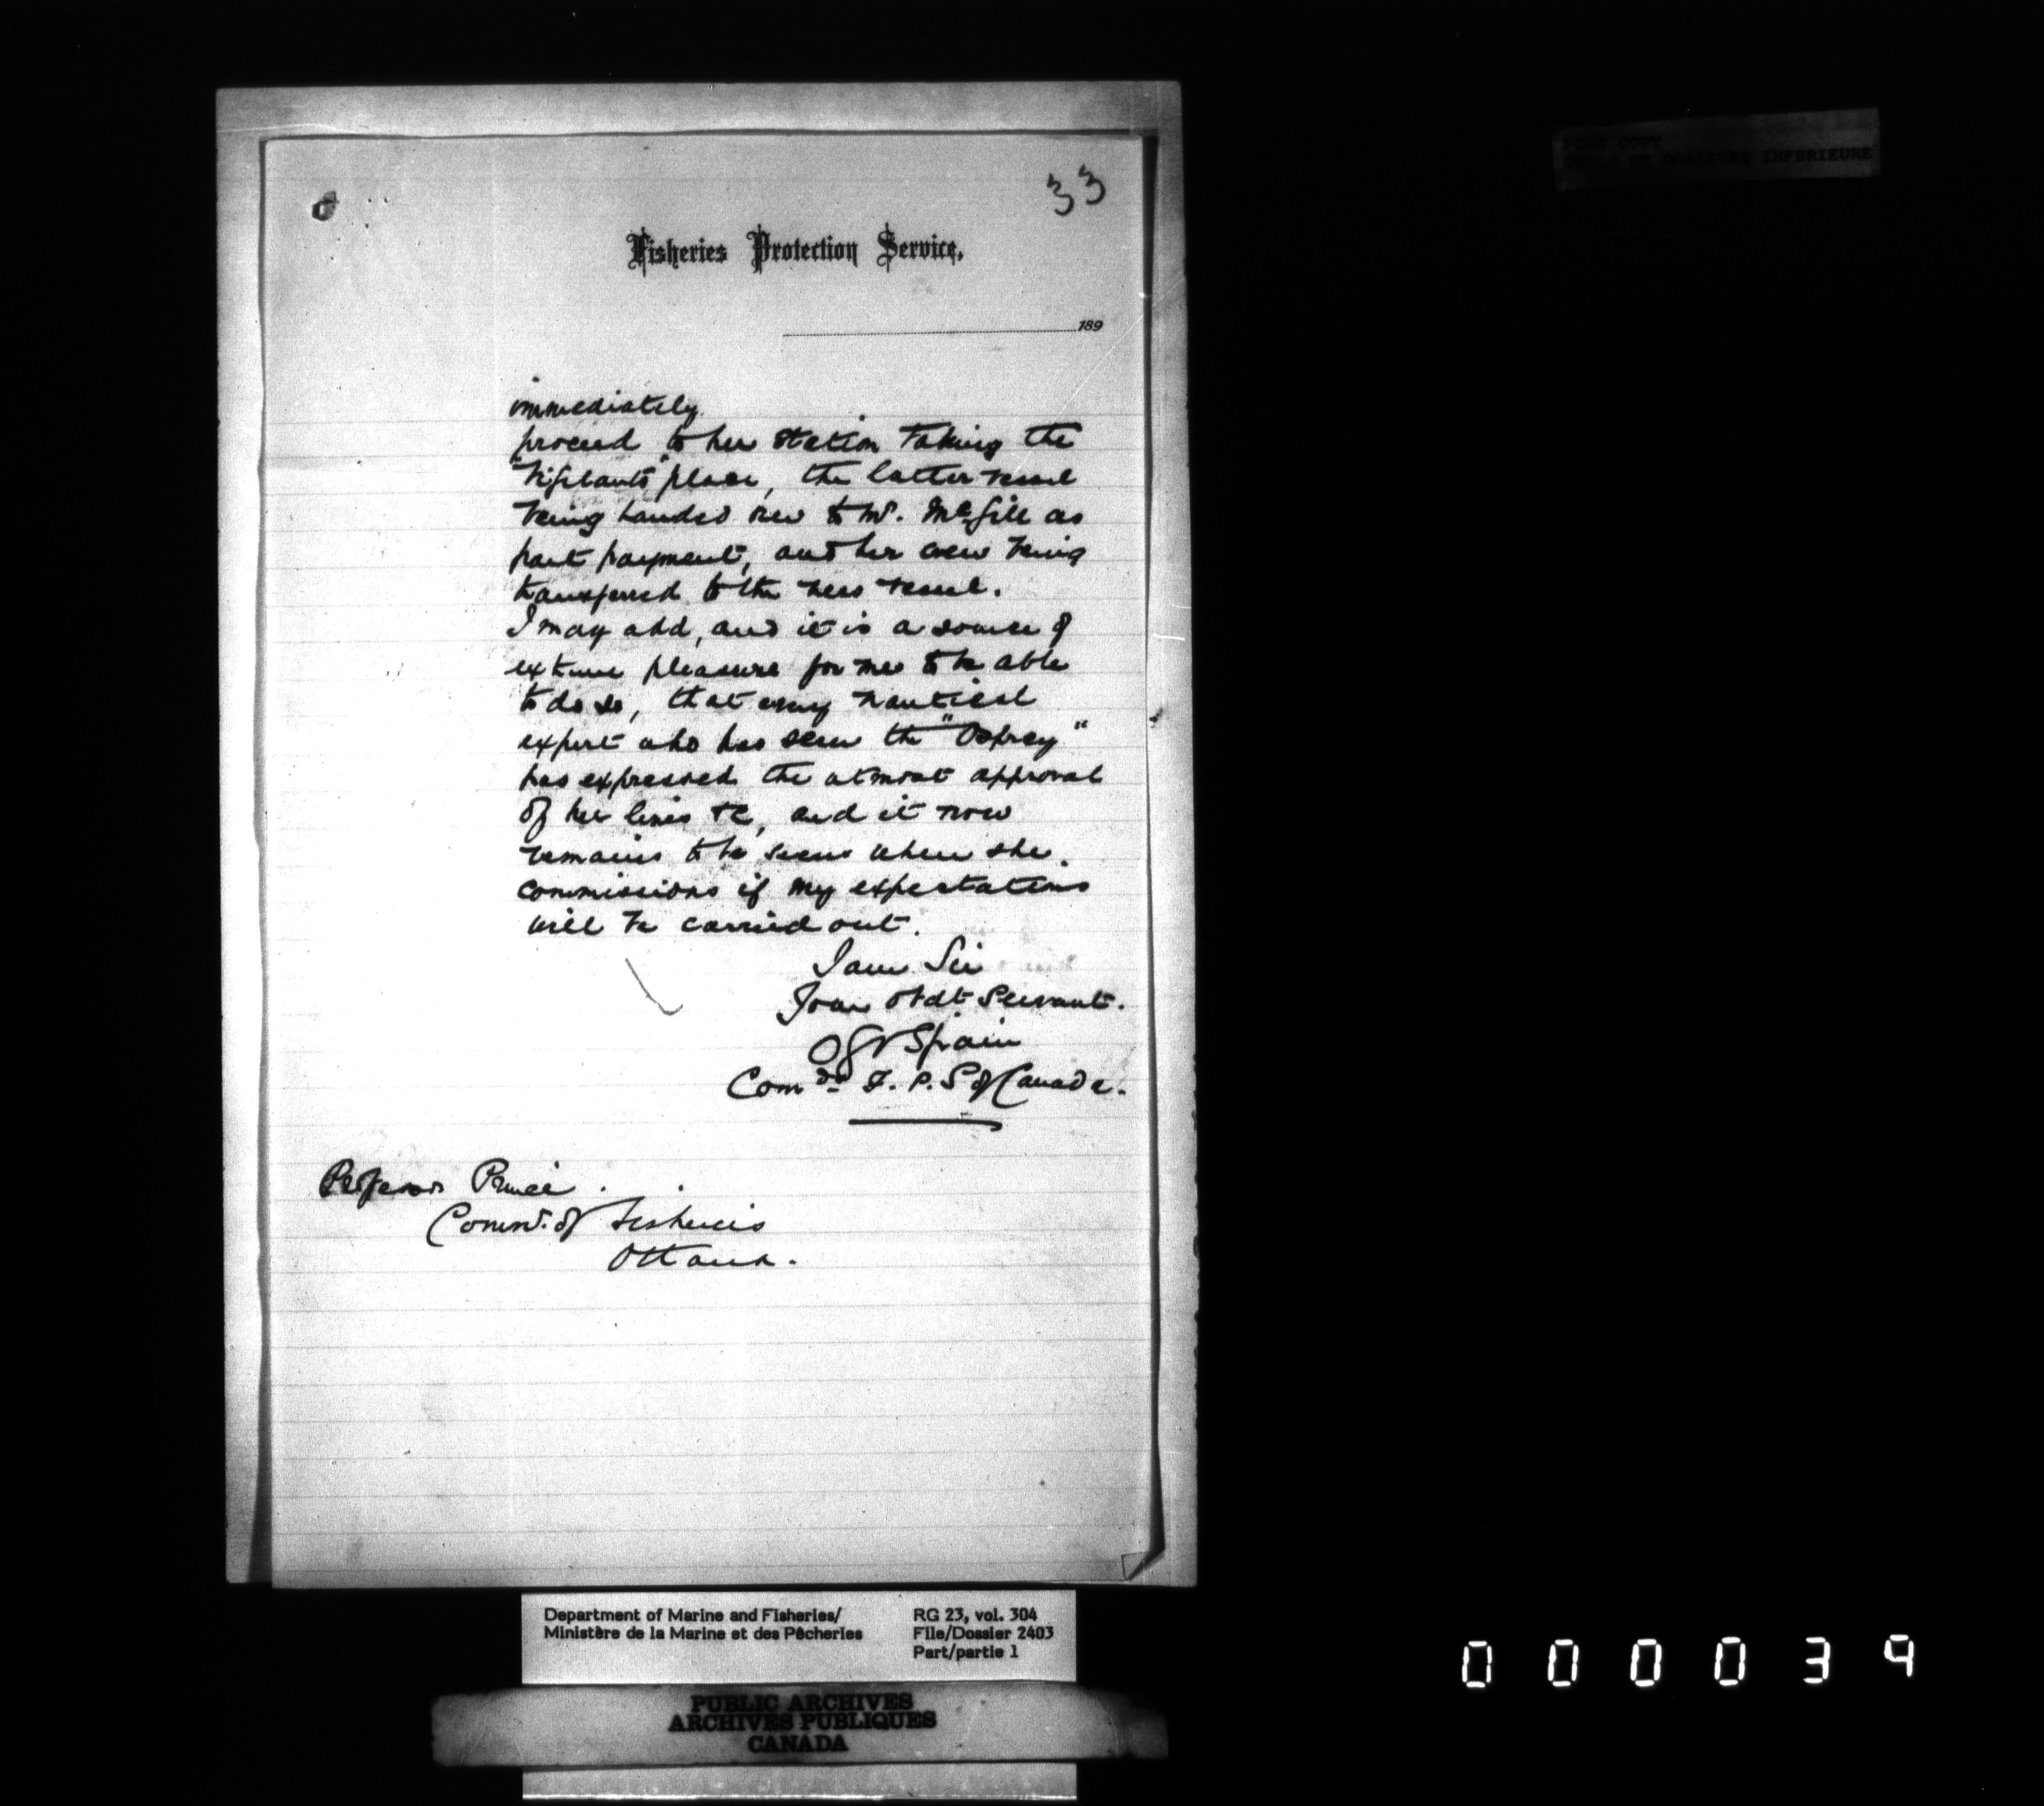 POOR COPY
COPIE DE QUALITEE INFERIEURE
33
Fisheries Protection Service,
189
immediately
proceed to her station taking the
"Vigilants" place, the latter vessel
being handed over to Mr. McGill as
part payment, and her crew being
transferred to the new vessel.
I may add, and it is a source of
extreme pleasure for me to be able
to do so, that every nautical
expert who has seen the "Osprey"
has expressed the utmost approval
of her lines &c, and it now
remains to be seen when she
commissions if my expectations
will be carried out.
I am Sir
Your Obdt Servant.
OGV Spain
Comdr F. P. S of Canada.
Professor Prince.
Commr. of Fisheries
Ottawa.
Department of Marine and Fisheries/
Ministère de la Marine et des Pêcheries
RG 23, vol. 304
File/Dossier 2403
Part/partie 1
PUBLIC ARCHIVES
ARCHIVES PUBLIQUES
CANADA
000039